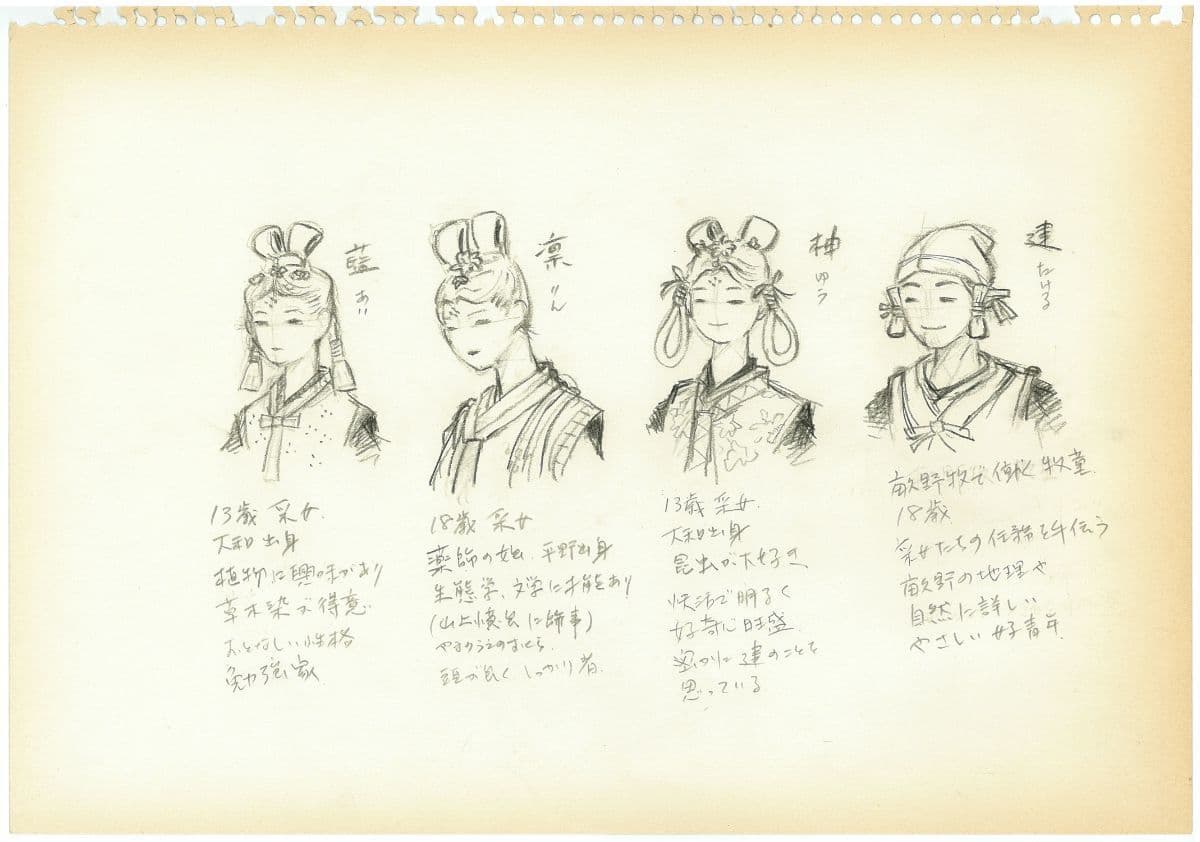 藍
あい
13歳 采女
大和出身
植物に興味があり
草木染が得意
おとなしい性格
勉強家
凛
りん
18歳 采女
薬師の娘、平野出身
生態学、文学に才能あり
(山上憶良に師事)
やまのうえのおくら
頭が良く しっかり者
柚
ゆう
13歳 采女
大和出身
昆虫が大好き
快活で明るく
好奇心旺盛
密かに建のことを
思っている
建
たける
畝野牧で働く牧童
18歳
采女たちの任務を手伝う
畝野の地理や
自然に詳しい
やさしい好青年